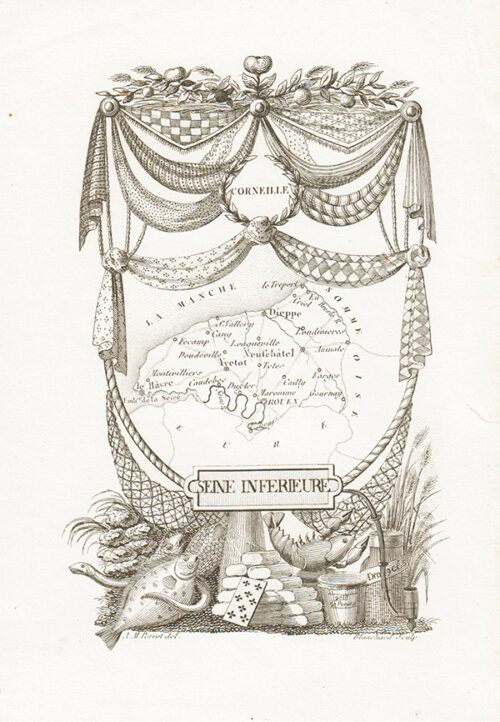 CORNEILLE
LA MANCHE
SOMME
OISE
EURE
le Treport
Eu
Criel
Dieppe
St. Vallery
Cany
Londinieres
Fecamp
Longueville
Aumale
Doudeville
Neufchatel
Yvetot
Totes
Montivilliers
le Hâvre
Caudebec
Cailly
Forges
Ducler
Maromme
Gournay
ROUEN
SEINE INFERIEURE
A. M. Perrot del.
Blanchard Sculp.